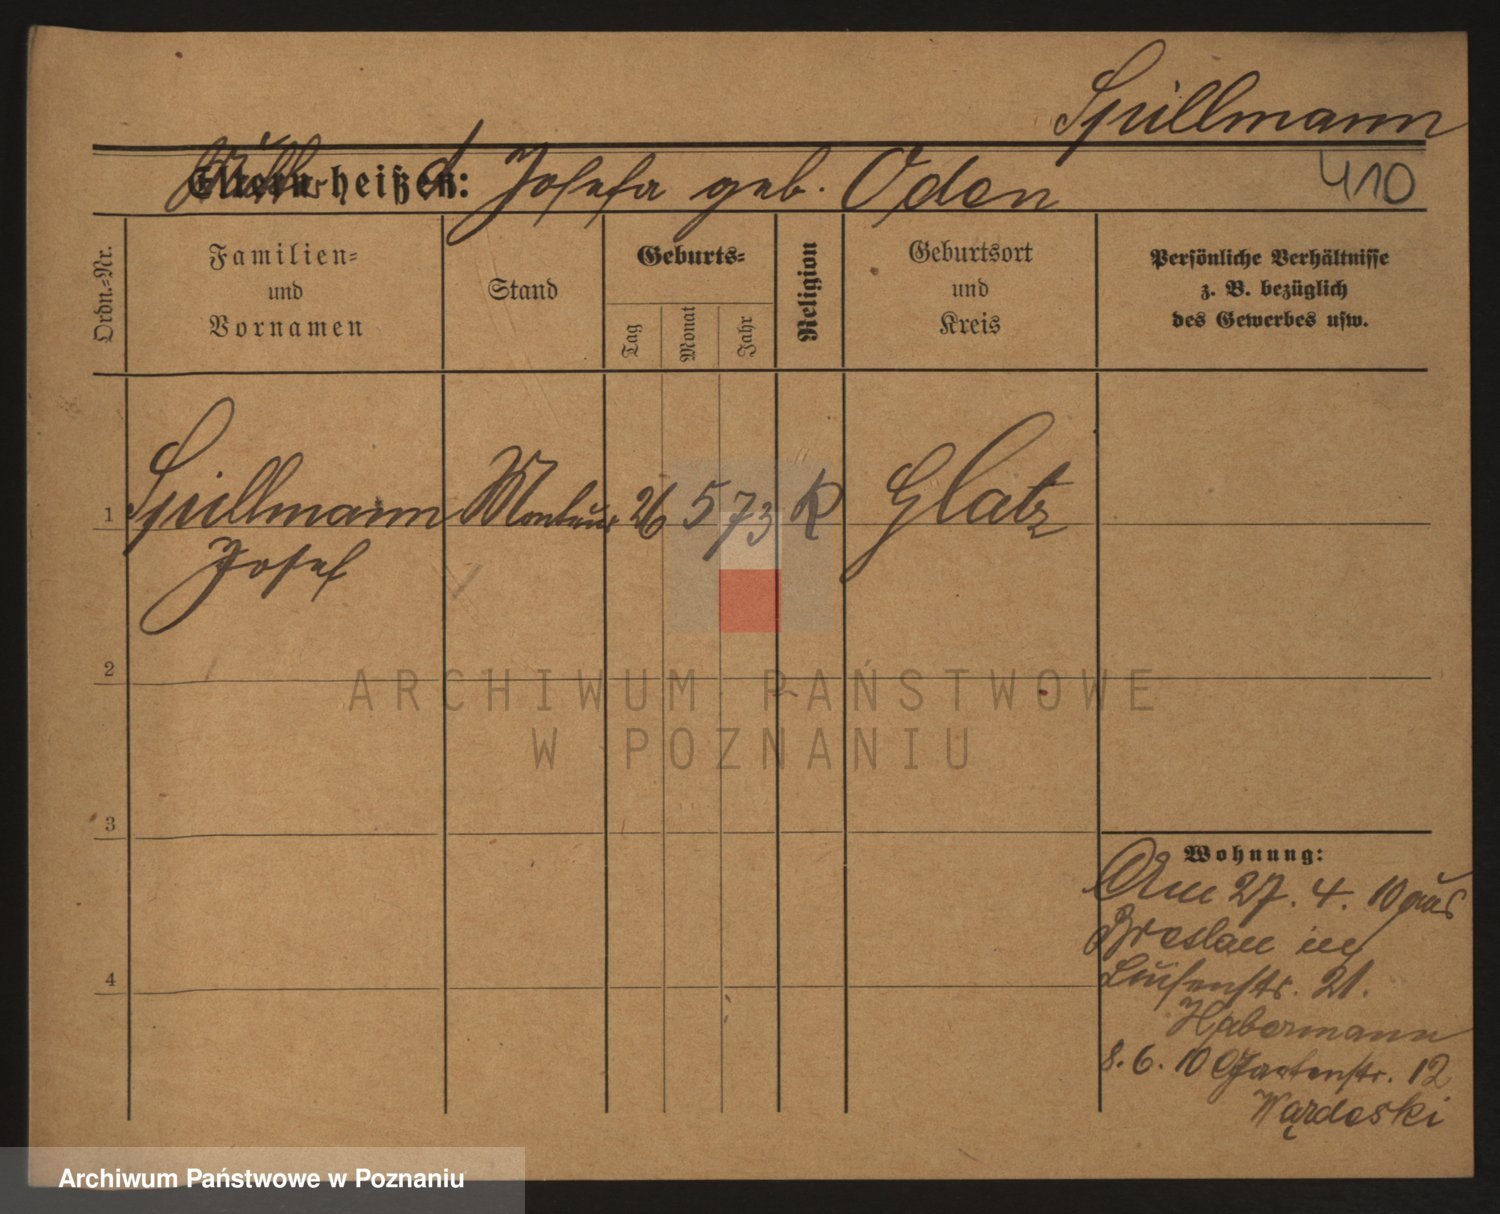 Spillmann
Eltern heißen: Josefa geb. Oden
410
Ordn.-Nr.
Familien-
und
Vornamen
Stand
Geburts-
Tag
Monat
Jahr
Religion
Geburtsort
und
Kreis
Persönliche Verhältnisse
z. B. bezüglich
des Gewerbes usw.
1
Spillmann Monteur 26 5 73 K Glatz
Josef
2
3
4
Wohnung:
Am 27. 4. 10 aus
Breslau
Luisenstr. 21.
Habermann
8. 6. 10 Gartenstr. 12
ARCHIWUM PAŃSTWOWE
W POZNANIU
Archiwum Państwowe w Poznaniu